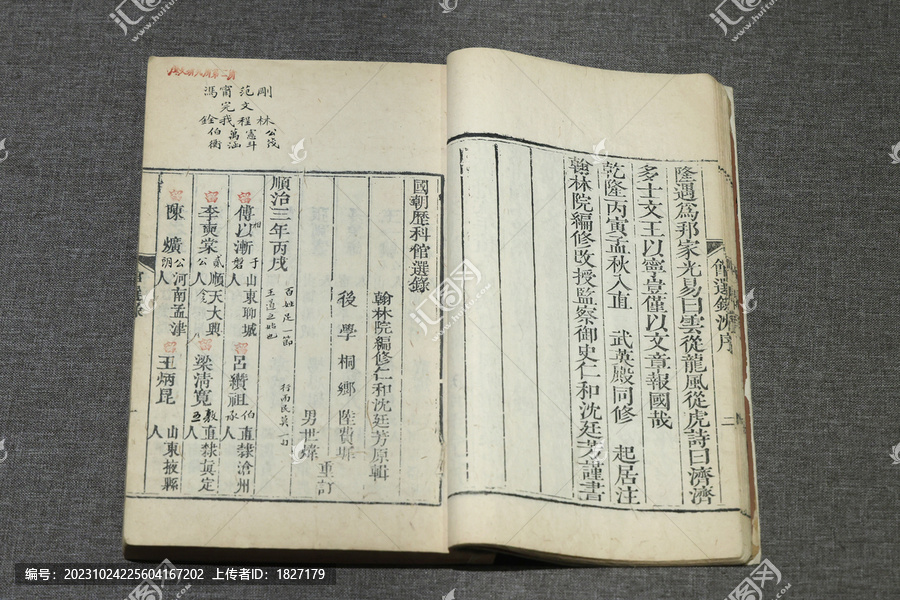 隆遇為邦家光易曰雲從龍風從虎詩曰濟濟
多士文王以寧豈僅以文章報國哉
乾隆丙寅孟秋入直 武英殿同修 起居注
翰林院編修改授監察御史仁和沈廷芳謹書
館選錄沈序
二
國朝歷科館選錄
翰林院編修仁和沈廷芳原輯
後學桐鄉陸費墀
男世
重訂
順治三年丙戌
百姓足一節
王道之始也
行而民莫一
傅以漸 于磐 山東聊城人
呂纘祖 伯承 直隸滄州人
李奭棠 貳公 順天大興人
梁清寬 敷五 直隸真定人
陳爌 公朗 河南孟津人
王炳昆 山東掖縣人
剛林 公茂
范文程 憲斗
甯完我 萬涵
馮銓 伯衡
汇图网
huitu.com
编号:20231024225604167202 上传者ID:1827179